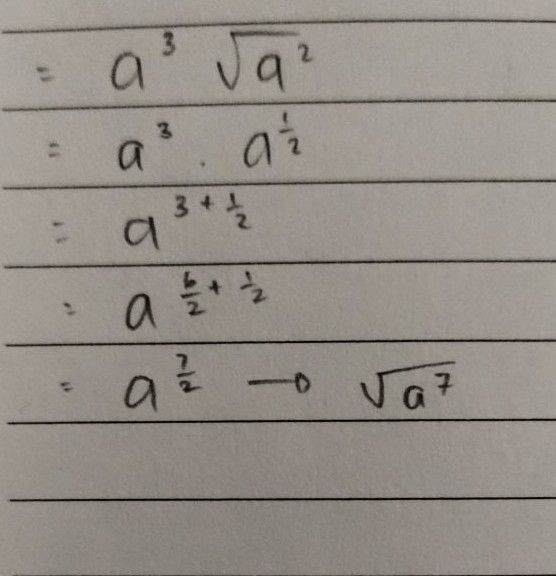 = a³ √a²
= a³ . a^½
= a^(3 + ½)
= a^(6/2 + ½)
= a^(7/2) → √a⁷